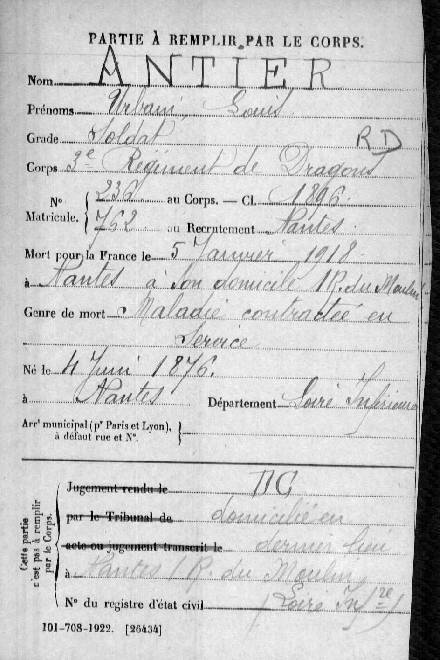 PARTIE À REMPLIR PAR LE CORPS.
Nom ANTIER
Prénoms Urbain, Louis
Grade Soldat RD
Corps 3e Régiment de Dragons
N° 236 au Corps. — Cl. 1896
Matricule. 762 au Recrutement Nantes.
Mort pour la France le 5 Janvier 1918
à Nantes à son domicile 1 R. du Moulin
Genre de mort Maladie contractée en
Service
Né le 4 Juin 1876.
à Nantes Département Loire Inférieure
Arrt municipal (pr Paris et Lyon),
à défaut rue et N°.
Cette partie
n'est pas à remplir
par le Corps.
Jugement rendu le
par le Tribunal de domicilié en
acte ou jugement transcrit le dernier lieu
à Nantes 1 R. du Moulin
N° du registre d'état civil (Loire Infre)
101-708-1922. [26434]